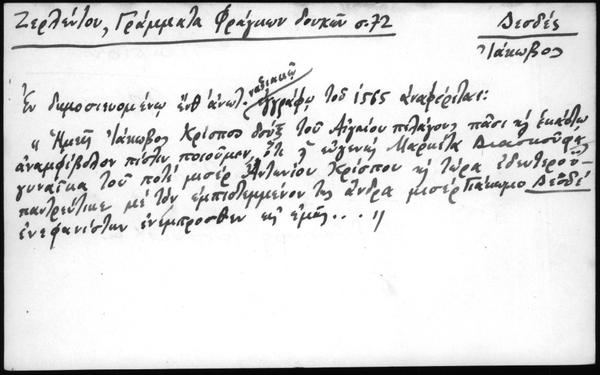 Ζερλέντου, Γράμματα Φράγκων δουκῶν σ. 72
Δεσδές
Ἰάκωβος
Ἐν δημοσιευομένῳ ἔνθ' ἀνωτ. ναξιακῷ ἐγγράφῳ τοῦ 1565 ἀναφέρεται:
" Ἡμεῖς Ἰάκωβος Κρίσπος δούξ τοῦ Αἰγαίου πελάγους πᾶσι
ἀναμφίβολον πίστιν ποιοῦμεν, ὅτι ἡ εὐγενής Μαρκέτα
γυναῖκα τοῦ ποτέ μισέρ Ἀντωνίου Κρίσπου κῆ τώρα ἐδευτερο-
παντρεύτικε μέ τόν ἐμπιστεμμένον της ἄνδρα μισέρ Γιάκωμο Δεσδέ
ἐνεφανίστην ἐνεμπροσθεν εἰς ἐμᾶς . . . "